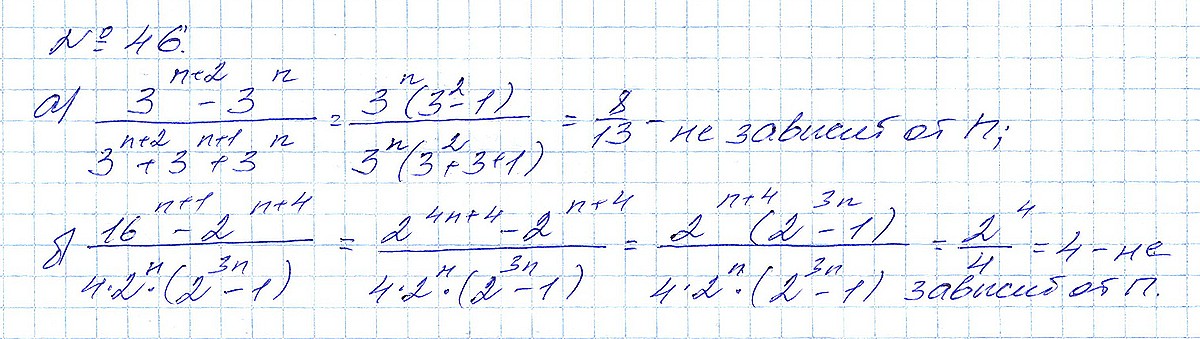 № 46.
а) (3^(n+2) - 3^n)/(3^(n+2) + 3^(n+1) + 3^n) = (3^n(3^2 - 1))/(3^n(3^2 + 3 + 1)) = 8/13 - не зависит от n;
б) (16^(n+1) - 2^(n+4))/(4·2^n·(2^(3n) - 1)) = (2^(4n+4) - 2^(n+4))/(4·2^n·(2^(3n) - 1)) = (2^(n+4)(2^(3n) - 1))/(4·2^n·(2^(3n) - 1)) = 2^4/4 = 4 - не
зависит от n.